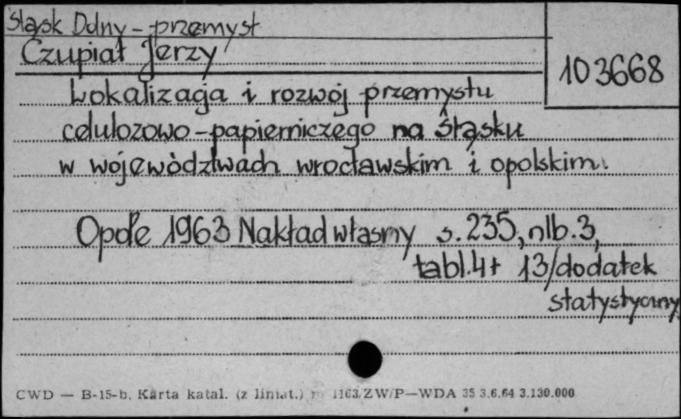 Śląsk Dolny - przemysł
Czupiał Jerzy
103668
Lokalizacja i rozwój przemysłu
celulozowo-papierniczego na Śląsku
w województwach wrocławskim i opolskim.
Opole 1963 Nakład własny s.235, nlb.3,
tabl.4+ 13/dodatek
statystyczny
CWD — B-15-b. Karta katal. (z limat.) 1163/ZW/P—WDA 35 3.6.64 3.130.000